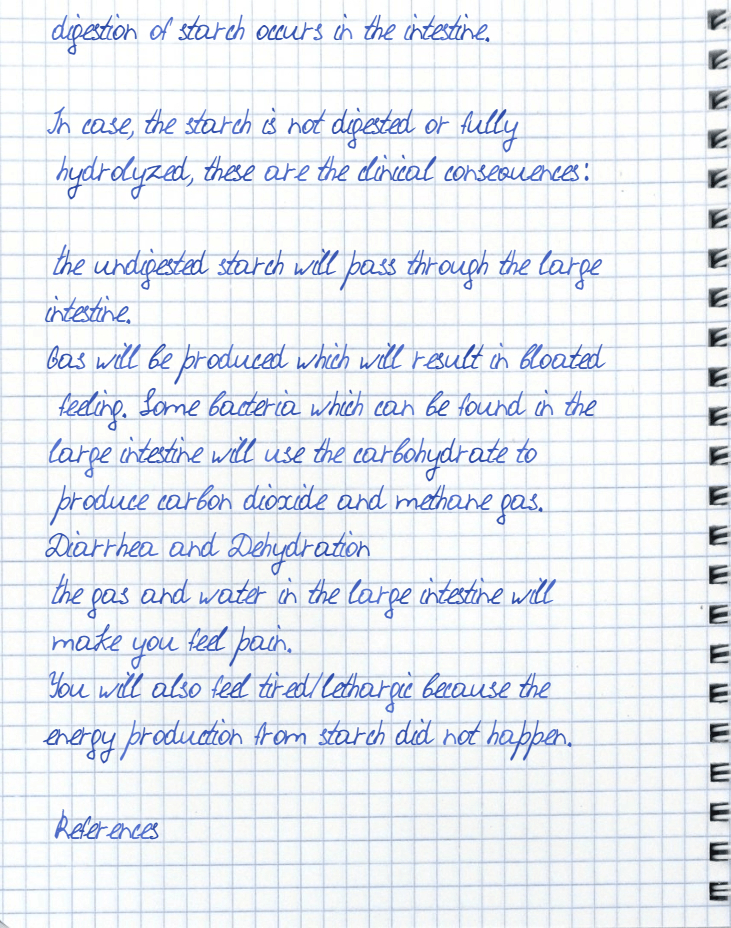 digestion of starch occurs in the intestine.
In case, the starch is not digested or fully
hydrolyzed, these are the clinical consequences:
the undigested starch will pass through the large
intestine.
Gas will be produced which will result in bloated
feeling. Some bacteria which can be found in the
large intestine will use the carbohydrate to
produce carbon dioxide and methane gas.
Diarrhea and Dehydration
the gas and water in the large intestine will
make you feel pain.
You will also feel tired/lethargic because the
energy production from starch did not happen.
References